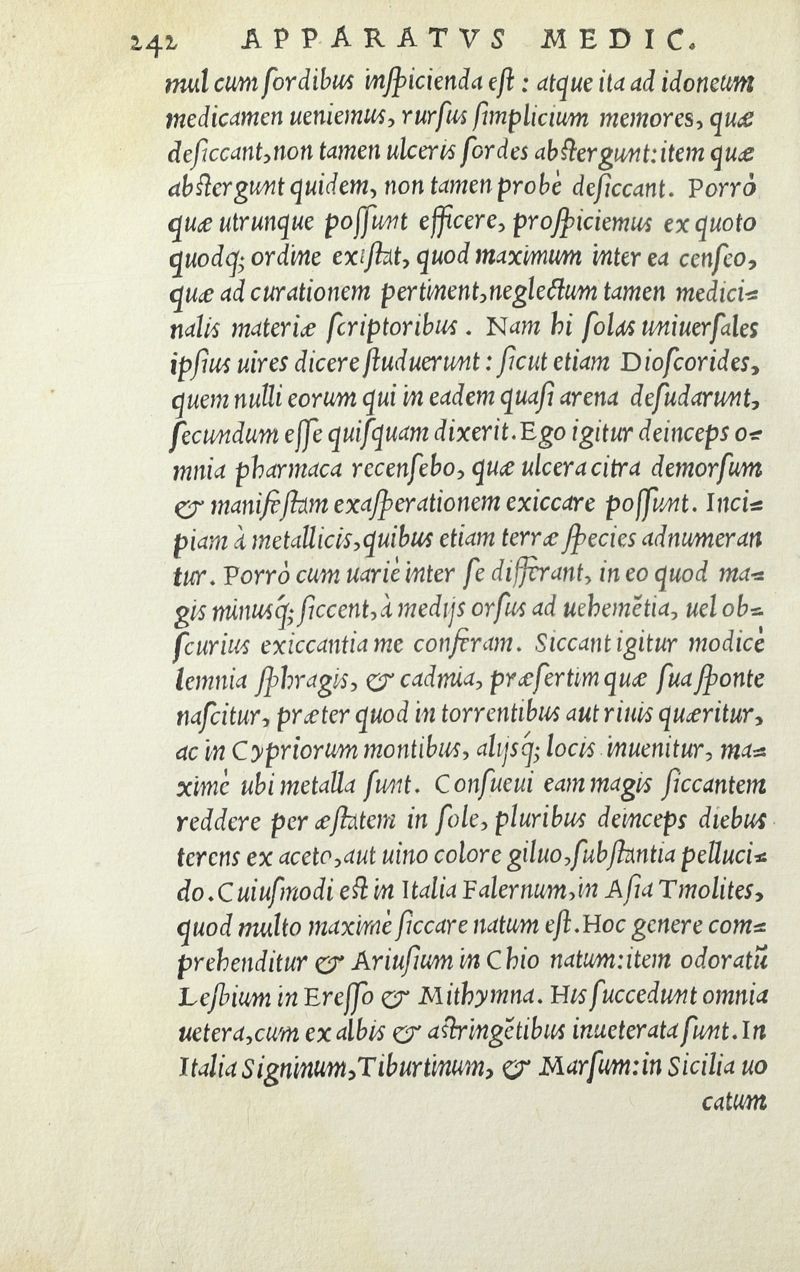 242 APPARATVS MEDIC.
mul cum ſordibus inſpicienda eſt : atque ita ad idoneum
medicamen ueniemus, rurſus ſimplicium memores, quæ
deſiccant, non tamen ulceris ſordes abſtergunt: item quæ
abſtergunt quidem, non tamen probè deſiccant. Porrò
quæ utrunque poſſunt efficere, proſpiciemus ex quoto
quodq; ordine exiſtat, quod maximum inter ea cenſeo,
quæ ad curationem pertinent, neglectum tamen medici=
nalis materiæ ſcriptoribus . Nam hi ſolas uniuerſales
ipſius uires dicere ſtuduerunt : ſicut etiam Dioſcorides,
quem nulli eorum qui in eadem quaſi arena deſudarunt,
ſecundum eſſe quiſquam dixerit. Ego igitur deinceps o=
mnia pharmaca recenſebo, quæ ulcera citra demorſum
& manifeſtam exaſperationem exiccare poſſunt. Inci=
piam à metallicis, quibus etiam terræ ſpecies adnumeran
tur. Porrò cum uariè inter ſe differant, in eo quod ma=
gis minusq́; ſiccent, à medijs orſus ad uehemẽtia, uel ob=
ſcurius exiccantia me conferam. Siccant igitur modicè
lemnia ſphragis, & cadmia, præſertim quæ ſua ſponte
naſcitur, præter quod in torrentibus aut riuis quæritur,
ac in Cypriorum montibus, alijsq́; locis inuenitur, ma=
ximè ubi metalla ſunt. Conſueui eam magis ſiccantem
reddere per æſtatem in ſole, pluribus deinceps diebus
terens ex aceto, aut uino colore giluo, ſubſtantia pelluci=
do. Cuiuſmodi eſt in Italia Falernum, in Aſia Tmolites,
quod multo maximè ſiccare natum eſt. Hoc genere com=
prehenditur & Ariuſium in Chio natum: item odoratũ
Leſbium in Ereſſo & Mithymna. His ſuccedunt omnia
uetera, cum ex albis & aſtringẽtibus inueterata ſunt. In
Italia Signinum, Tiburtinum, & Marſum: in Sicilia uo
catum